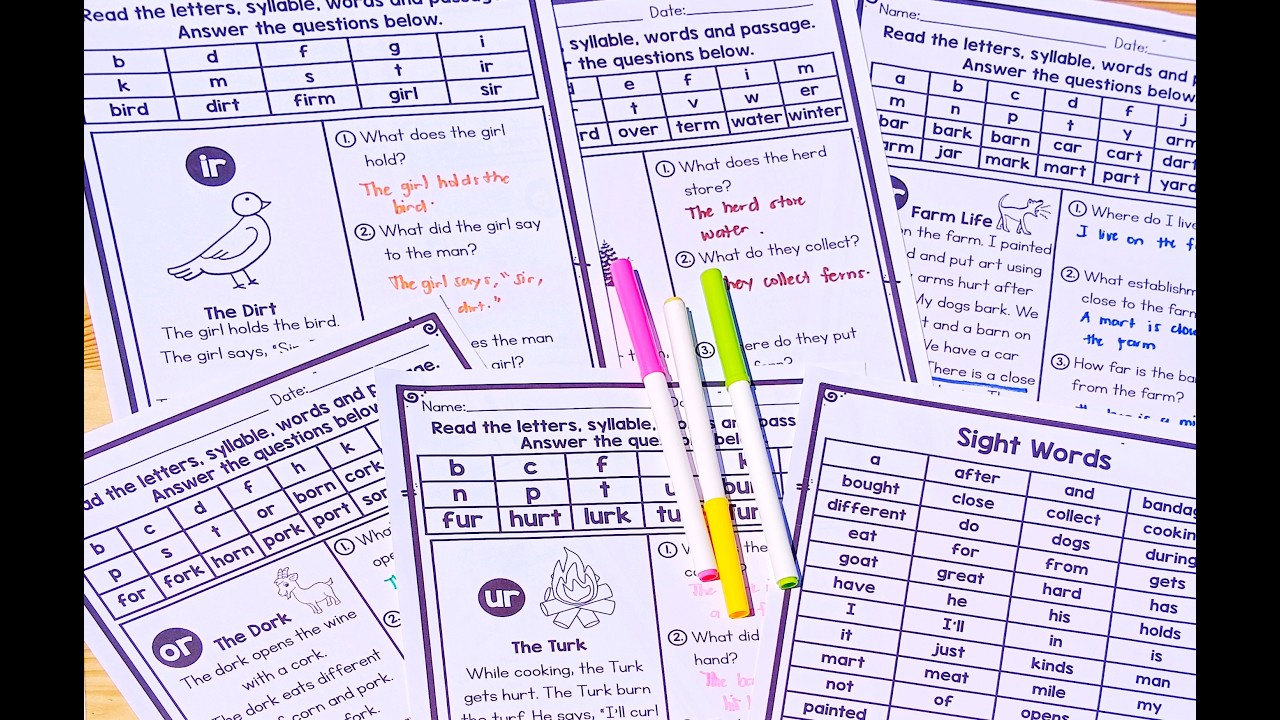 Read the letters, syllable, words and
Answer the questions below.
b d f g i
k m s t ir
bird dirt firm girl sir
ir
The Dirt
The girl holds the bird.
The girl says,
1. What does the girl
hold?
The girl holds the
bird.
2. What did the girl say
to the man?
The girl says, "Sir,
dirt."
the man
girl?
Date:
syllable, words and passage.
the questions below.
e f i m
t v w er
over term water winter
1. What does the herd
store?
The herd store
water.
2. What do they collect?
They collect ferns.
3.
do they put
Name: Date:
Read the letters, syllable, words and
Answer the questions below.
a b c d f j
m n p t y arm
bar bark barn car cart dart
arm jar mark mart part yard
Farm Life
on the farm. I painted
and put art using
arms hurt after
My dogs bark. We
and a barn on
We have a car
There is a close
1. Where do I live
I live on the
2. What
close to the farm
A mart is close
the farm
3. How far is the
from the farm?
Date:
the letters, syllable, words and
Answer the questions below
b c d f h k
p s t or born cork
for fork horn pork port
or
The Dork
The dork opens the wine
with a cork.
The dork eats different
corn and pork.
fork.
1.
2.
Name:
Read the letters, syllable,
Answer the
b c f
n p t
fur hurt lurk
ur
The Turk
While cooking, the Turk
gets hurt. The Turk burn
the turf. He says, "I'll curl
1. the
2. What did
hand?
Sight Words
a after and
bought close collect
different do dogs during
eat for from gets
goat great hard has
have he his holds
I I'll in is
it just kinds man
mart meat mile my
not of opens
painted